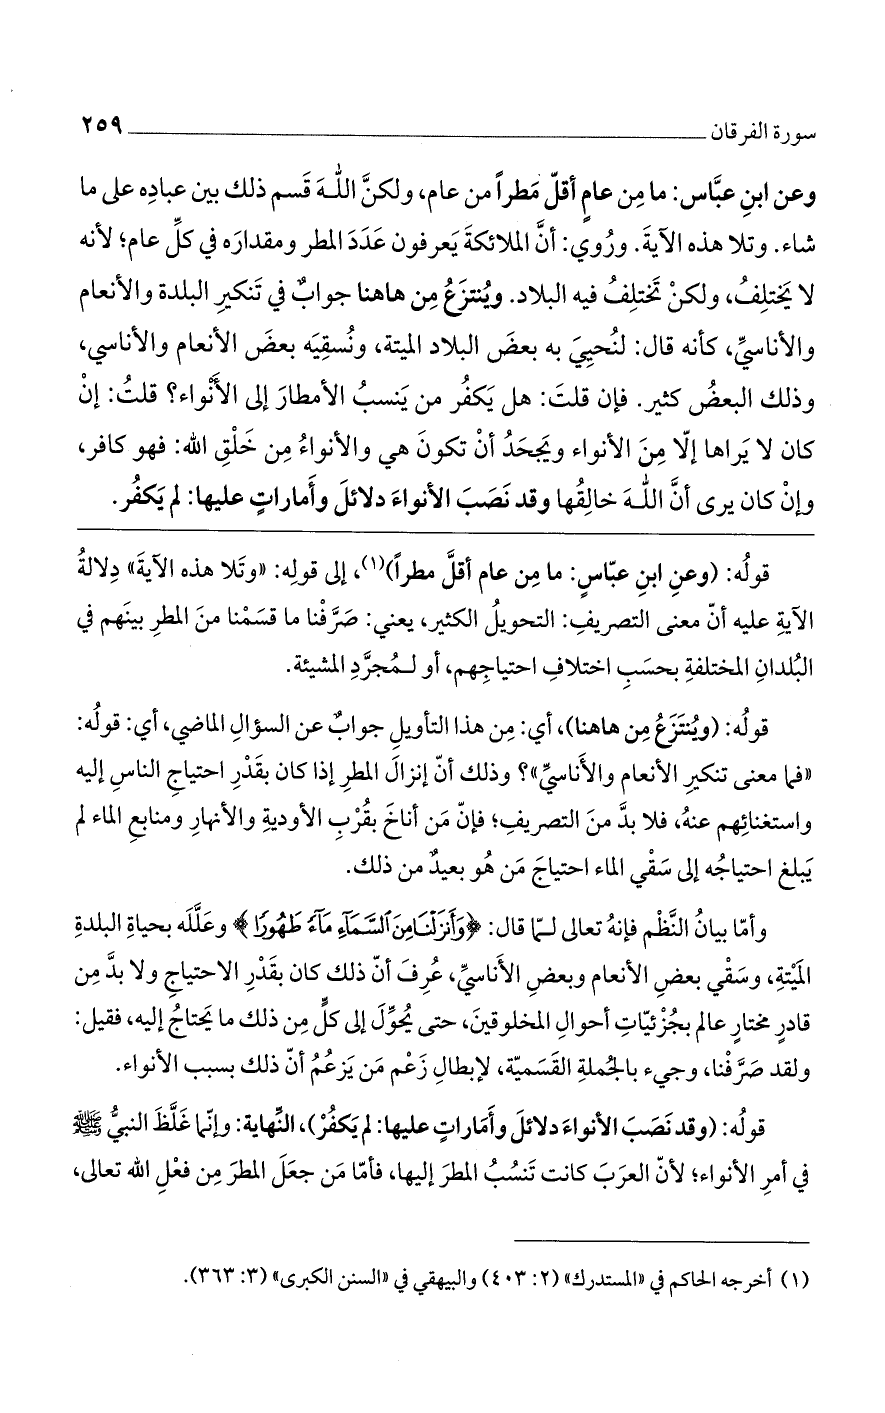 سورة الفرقان ٢٥٩
وعن ابنِ عبَّاس: ما مِن عامٍ أقلّ مَطراً من عام، ولكنَّ اللَّهَ قَسم ذلك بين عبادِه على ما
شاء. وتلا هذه الآيةَ. ورُوي: أنَّ الملائكةَ يَعرفون عَدَدَ المطر ومقدارَه في كلِّ عام؛ لأنه
لا يَختلِفُ، ولكنْ تَختلِفُ فيه البلاد. ويُنتزَعُ مِن هاهنا جوابٌ في تَنكيرِ البلدة والأنعام
والأناسيِّ، كأنه قال: لنُحيِيَ به بعضَ البلاد الميتة، ونُسقِيَه بعضَ الأنعام والأناسي،
وذلك البعضُ كثير. فإن قلتَ: هل يَكفُر من يَنسبُ الأمطارَ إلى الأَنْواء؟ قلتُ: إنْ
كان لا يَراها إلّا مِنَ الأنواء ويَجحَدُ أنْ تكونَ هي والأنواءُ مِن خَلْقِ الله: فهو كافر،
وإنْ كان يرى أنَّ اللَّهَ خالِقُها وقد نَصَبَ الأنواءَ دلائلَ وأَماراتٍ عليها: لم يَكفُر.
قولُه: (وعنِ ابنِ عبّاسٍ: ما مِن عام أقلَّ مطراً)(١)، إلى قولِه: «وتَلا هذه الآيةَ» دِلالةُ
الآيةِ عليه أنّ معنى التصريفِ: التحويلُ الكثير، يعني: صَرَّفْنا ما قسَمْنا منَ المطرِ بينَهم في
البُلدانِ المختلفةِ بحسَبِ اختلافِ احتياجِهم، أو لـمُجرَّدِ المشيئة.
قولُه: (ويُنتَزَعُ مِن هاهنا)، أي: مِن هذا التأويلِ جوابٌ عن السؤالِ الماضي، أي: قولُه:
«فما معنى تنكيرِ الأنعام والأَناسيِّ»؟ وذلك أنّ إنزالَ المطرِ إذا كان بقَدْرِ احتياجِ الناسِ إليه
واستغنائِهم عنهُ، فلا بدَّ منَ التصريفِ؛ فإنّ مَن أناخَ بقُرْبِ الأوديةِ والأنهارِ ومنابعِ الماء لم
يَبلغ احتياجُه إلى سَقْيِ الماء احتياجَ مَن هُو بعيدٌ من ذلك.
وأمّا بيانُ النَّظْم فإنهُ تعالى لـمّا قال: ﴿وَأَنزَلْنَا مِنَ ٱلسَّمَآءِ مَآءً طَهُورًا﴾ وعلَّلَه بحياةِ البلدةِ
المَيْتةِ، وسَقْيِ بعضِ الأنعام وبعضِ الأَناسيِّ، عُرِفَ أنّ ذلك كان بقَدْرِ الاحتياجِ ولا بدَّ مِن
قادرٍ مختارٍ عالم بجُزْئيّاتِ أحوالِ المخلوقينَ، حتى يُحوِّلَ إلى كلٍّ مِن ذلك ما يَحتاجُ إليه، فقيل:
ولقد صَرَّفْنا، وجيء بالجُملةِ القَسَميّة، لإبطالِ زَعْم مَن يَزعُمُ أنّ ذلك بسببِ الأنواء.
قولُه: (وقد نَصَبَ الأنواءَ دلائلَ وأَمَاراتٍ عليها: لم يَكفُرْ)، النِّهاية: وإنّما غَلَّظَ النبيُّ ﷺ
في أمرِ الأنواء؛ لأنّ العرَبَ كانت تَنسُبُ المطرَ إليها، فأمّا مَن جعَلَ المطرَ مِن فعْلِ الله تعالى،
(١) أخرجه الحاكم في «المستدرك» (٢: ٤٠٣) والبيهقي في «السنن الكبرى» (٣: ٣٦٣).